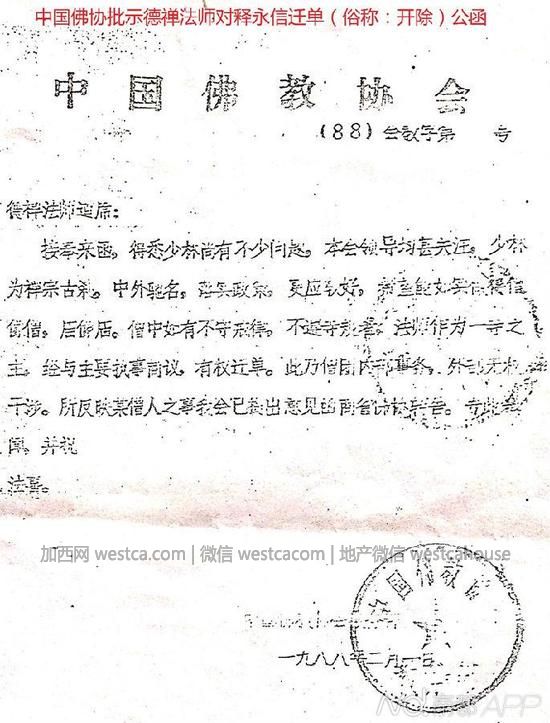 中国佛协批示德禅法师对释永信迁单（俗称：开除）公函
中国佛教协会
(88)会教字第 号
德禅法师莲席：
接奉来函，得悉少林尚有不少问题，本会领导均甚关注。少林
为禅宗古刹，中外驰名，落实政策，更应较好，
僧。后佛后。僧中如有不守戒律，不遵寺规者，法师作为一寺之
主，经与主要执事商议，有权迁单。此乃僧团内部事务，外部无权
干涉。所反映某僧人之事我会已提出意见
闻，并祝
法喜。
加西网 westca.com | 微信 westcacom | 地产微信 westcahouse
中国佛教协
一九八八年二月一日
APP